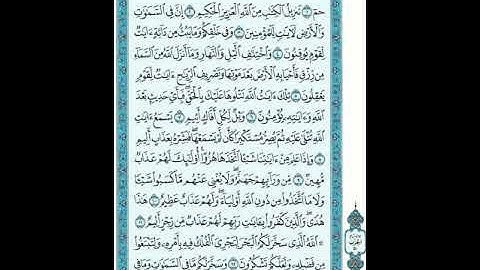 حمٓ ۝١ تَنزِيلُ ٱلْكِتَٰبِ مِنَ ٱللَّهِ ٱلْعَزِيزِ ٱلْحَكِيمِ ۝٢ إِنَّ فِى ٱلسَّمَٰوَٰتِ
وَٱلْأَرْضِ لَءَايَٰتٍ لِّلْمُؤْمِنِينَ ۝٣ وَفِى خَلْقِكُمْ وَمَا يَبُثُّ مِن دَآبَّةٍ ءَايَٰتٌ
لِّقَوْمٍ يُوقِنُونَ ۝٤ وَٱخْتِلَٰفِ ٱلَّيْلِ وَٱلنَّهَارِ وَمَآ أَنزَلَ ٱللَّهُ مِنَ ٱلسَّمَآءِ
مِن رِّزْقٍ فَأَحْيَا بِهِ ٱلْأَرْضَ بَعْدَ مَوْتِهَا وَتَصْرِيفِ ٱلرِّيَٰحِ ءَايَٰتٌ لِّقَوْمٍ
يَعْقِلُونَ ۝٥ تِلْكَ ءَايَٰتُ ٱللَّهِ نَتْلُوهَا عَلَيْكَ بِٱلْحَقِّ فَبِأَىِّ حَدِيثٍۭ بَعْدَ
ٱللَّهِ وَءَايَٰتِهِۦ يُؤْمِنُونَ ۝٦ وَيْلٌ لِّكُلِّ أَفَّاكٍ أَثِيمٍ ۝٧ يَسْمَعُ ءَايَٰتِ
ٱللَّهِ تُتْلَىٰ عَلَيْهِ ثُمَّ يُصِرُّ مُسْتَكْبِرًا كَأَن لَّمْ يَسْمَعْهَا فَبَشِّرْهُ بِعَذَابٍ أَلِيمٍ
۝٨ وَإِذَا عَلِمَ مِنْ ءَايَٰتِنَا شَيْـًٔا ٱتَّخَذَهَا هُزُوًا أُو۟لَٰٓئِكَ لَهُمْ عَذَابٌ
مُّهِينٌ ۝٩ مِّن وَرَآئِهِمْ جَهَنَّمُ وَلَا يُغْنِى عَنْهُم مَّا كَسَبُوا۟ شَيْـًٔا
وَلَا مَا ٱتَّخَذُوا۟ مِن دُونِ ٱللَّهِ أَوْلِيَآءَ وَلَهُمْ عَذَابٌ عَظِيمٌ ۝١٠ هَٰذَا
هُدًى وَٱلَّذِينَ كَفَرُوا۟ بِـَٔايَٰتِ رَبِّهِمْ لَهُمْ عَذَابٌ مِّن رِّجْزٍ أَلِيمٌ ۝١١
۞ ٱللَّهُ ٱلَّذِى سَخَّرَ لَكُمُ ٱلْبَحْرَ لِتَجْرِىَ ٱلْفُلْكُ فِيهِ بِأَمْرِهِۦ وَلِتَبْتَغُوا۟
مِن فَضْلِهِۦ وَلَعَلَّكُمْ تَشْكُرُونَ ۝١٢ وَسَخَّرَ لَكُم مَّا فِى ٱلسَّمَٰوَٰتِ وَمَا فِى